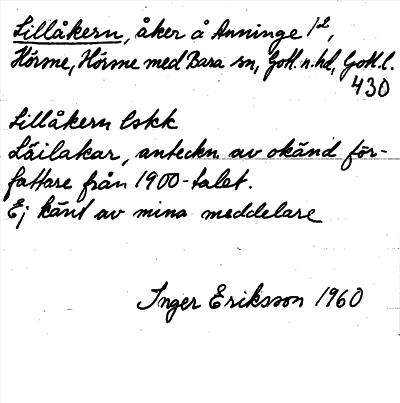 Lillåkern, åker å Anninge 1²,
Hörsne, Hörsne med Bara sn, Gotl. n. hd, Gotl. l.
430
Lillåkern lskk
Läilakar, anteckn. av okänd för-
fattare från 1900-talet.
Ej känt av mina meddelare
Inger Eriksson 1960